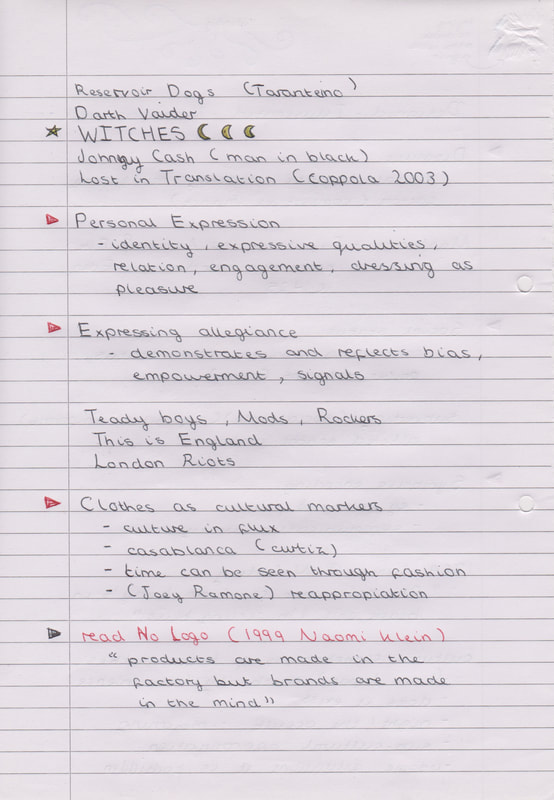 Reservoir Dogs (Tarantino)
Darth Vaider
WITCHES
Johnny Cash (man in black)
Lost in Translation (Coppola 2003)
Personal Expression
- identity, expressive qualities,
relation, engagement, dressing as
pleasure
Expressing allegiance
- demonstrates and reflects bias,
empowerment, signals
Teady boys, Mods, Rockers
This is England
London Riots
Clothes as cultural markers
- culture in flux
- casablanca (curtiz)
- time can be seen through fashion
- (Joey Ramone) reappropiation
read No Logo (1999 Naomi Klein)
"products are made in the
factory but brands are made
in the mind"